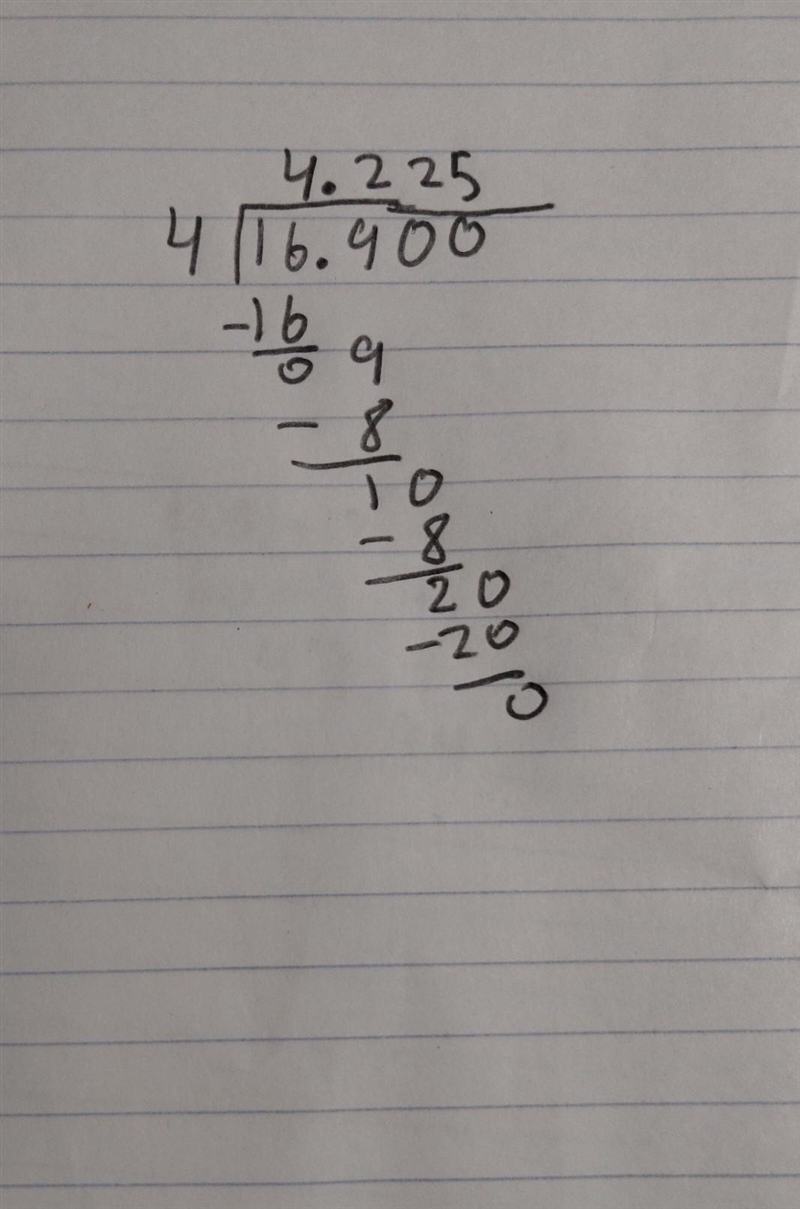 4.225
4 16.900
-16
0 9
- 8
10
- 8
20
-20
0